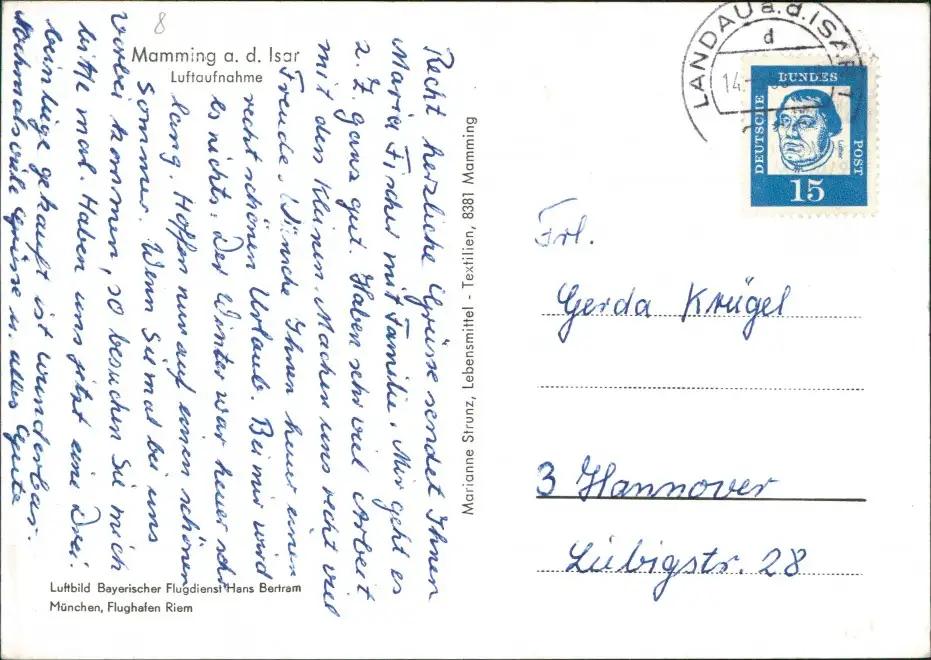 8
Mamming a. d. Isar
Luftaufnahme
Recht herzliche Grüsse sendet Ihnen
Maria Fischer mit Familie. Mir geht es
z. Z. ganz gut. Haben sehr viel Arbeit
mit den Kleinen. Machen uns recht viel
Freude. Wünsche Ihnen heuer einen
recht schönen Urlaub. Bei mir wird
es nichts. Der Winter war heuer sehr
lang. Hoffen nun auf einen schönen
Sommer. Wenn Sie mal bei uns
vorbei kommen, so besuchen Sie mich
bitte mal. Haben uns jetzt eine Drei-
gekauft ist wunderbar.
Nochmals viele Grüsse u. alles Gute
Luftbild Bayerischer Flugdienst Hans Bertram
München, Flughafen Riem
Marianne Strunz, Lebensmittel - Textilien, 8381 Mamming
LANDAU a. d. ISAR 1
d
14.
DEUTSCHE
BUNDES
POST
15
Frl.
Gerda Krügel
3 Hannover
Liebigstr. 28